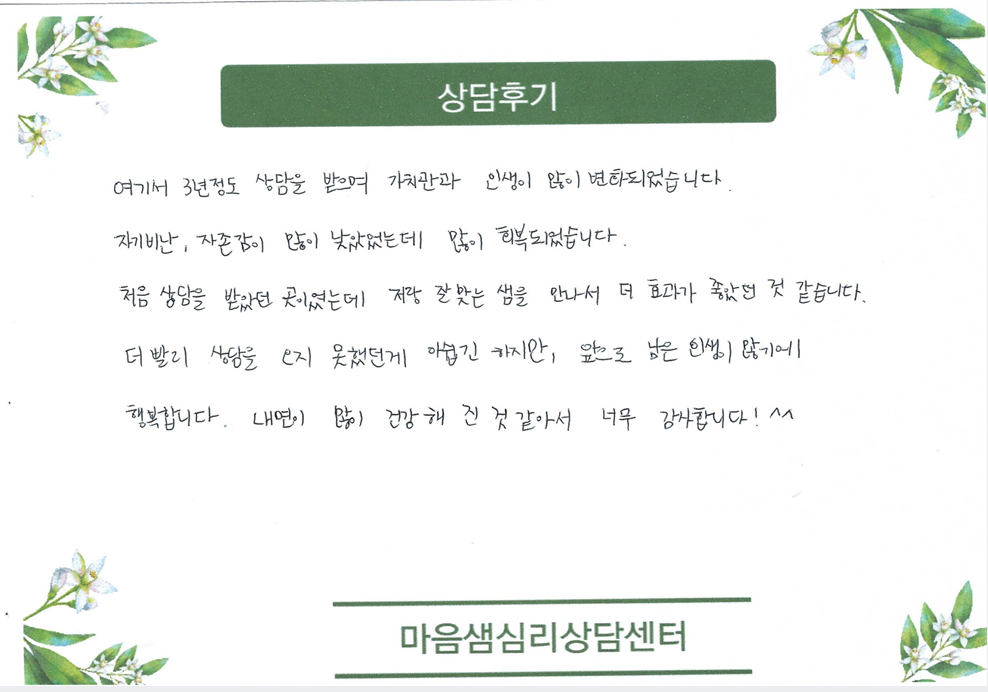 상담후기
여기서 3년정도 상담을 받으며 가치관과 인생이 많이 변화되었습니다.
자기비난, 자존감이 많이 낮았었는데 많이 회복되었습니다.
처음 상담을 받았던 곳이였는데 저랑 잘맞는 샘을 만나서 더 효과가 좋았던 것 같습니다.
더 빨리 상담을 오지 못했던게 아쉽긴 하지만, 앞으로 남은 인생이 많기에
행복합니다. 내면이 많이 건강해 진 것 같아서 너무 감사합니다! ^^
마음샘심리상담센터